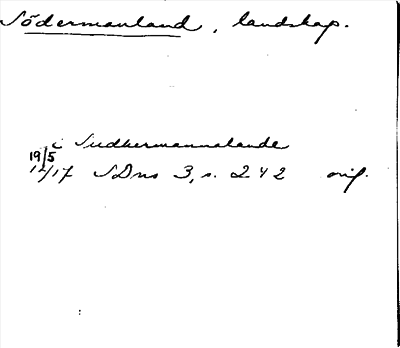 Södermanland, landskap.
i Sudhermannalande
19/5
14/17 SDns 3, s. 242 orig.